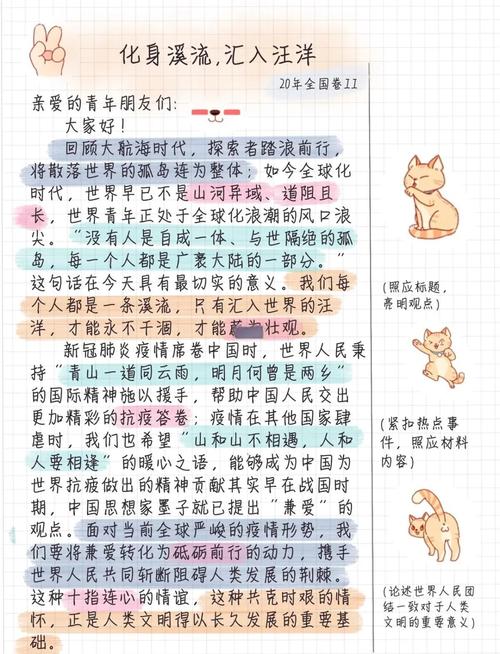 化身溪流,汇入汪洋
20年全国卷II
亲爱的青年朋友们:
大家好!
回顾大航海时代,探索者踏浪前行,
将散落世界的孤岛连为整体;如今全球化
时代,世界早已不是山河异域、道阻且
长,世界青年正处于全球化浪潮的风口浪
尖。“没有人是自成一体、与世隔绝的孤
岛,每一个人都是广袤大陆的一部分。”
这句话在今天具有最切实的意义。我们每
个人都是一条溪流,只有汇入世界的汪
洋,才能永不干涸,才能蔚为壮观。
新冠肺炎疫情席卷中国时,世界人民秉
持“青山一道同云雨,明月何曾是两乡”
的国际精神施以援手,帮助中国人民交出
更加精彩的抗疫答卷;疫情在其他国家肆
虐时,我们也希望“山和山不相遇,人和
人要相逢”的暖心之语,能够成为中国为
世界抗疫做出的精神贡献其实早在战国时
期,中国思想家墨子就已提出“兼爱”的
观点。面对当前全球严峻的疫情形势,我
们要将兼爱转化为砥砺前行的动力,携手
世界人民共同斩断阻碍人类发展的荆棘。
这种十指连心的情谊,这种共克时艰的情
怀,正是人类文明得以长久发展的重要基
础。
(照应标题,
亮明观点)
(紧扣热点事
件,照应材料
内容)
(论述世界人民团
结一致对于人类
文明的重要意义)